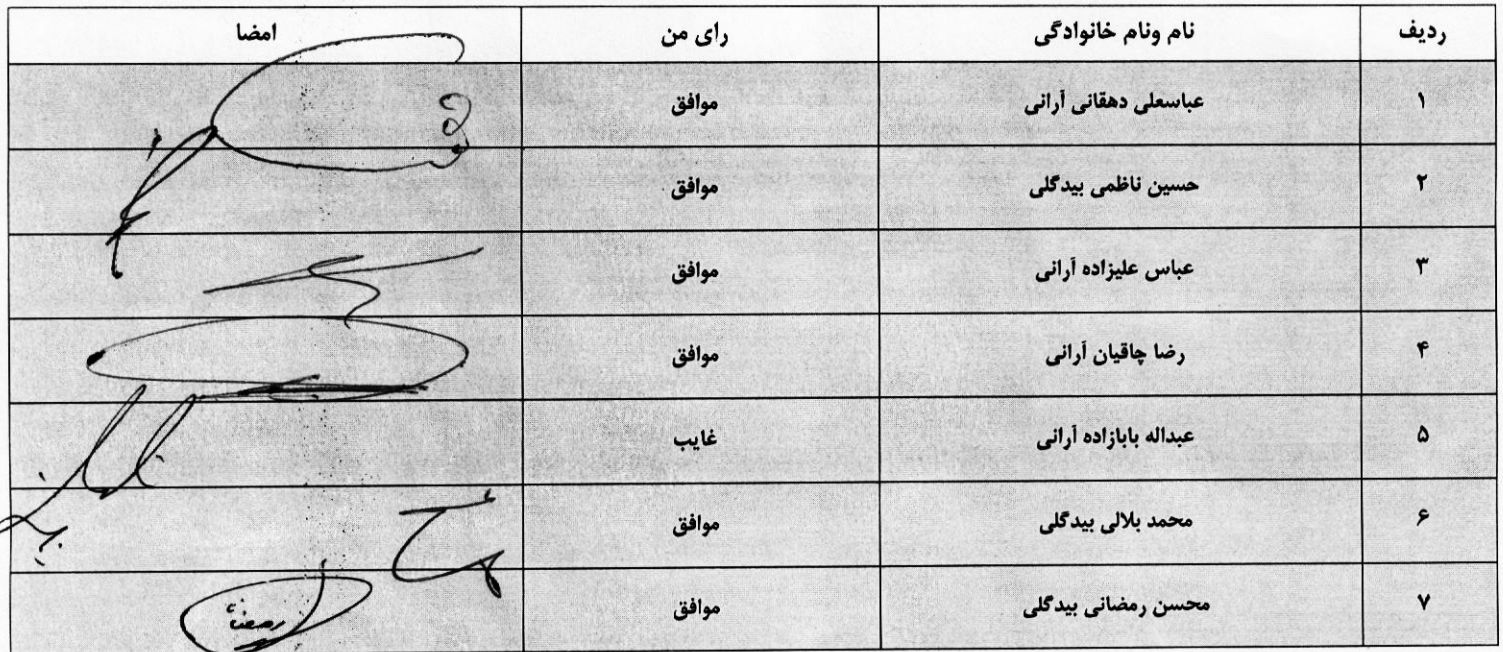 ردیف نام ونام خانوادگی رای من امضا
۱ عباسعلی دهقانی آرانی موافق
۲ حسین ناظمی بیدگلی موافق
۳ عباس علیزاده آرانی موافق
۴ رضا چاقیان آرانی موافق
۵ عبداله بابازاده آرانی غایب
۶ محمد بلالی بیدگلی موافق
۷ محسن رمضانی بیدگلی موافق